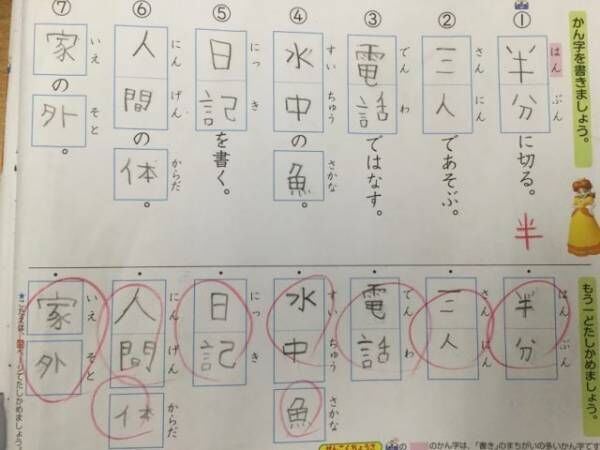 かん字を書きましょう。
① 半分に切る。
はん ぶん
半
② 三人であそぶ。
さん にん
③ 電話ではなす。
でん わ
④ 水中の魚。
すい ちゅう さかな
⑤ 日記を書く。
にっ き
⑥ 人間の体。
にん げん からだ
⑦ 家の外。
いえ そと
もう一どたしかめましょう。
半分
はん ぶん
三人
さん にん
電話
でん わ
水中
すい ちゅう
魚
さかな
日記
にっ き
人間
にん げん
体
からだ
家外
いえ そと
のかん字は、「書き」のまちがいの多いかん字です